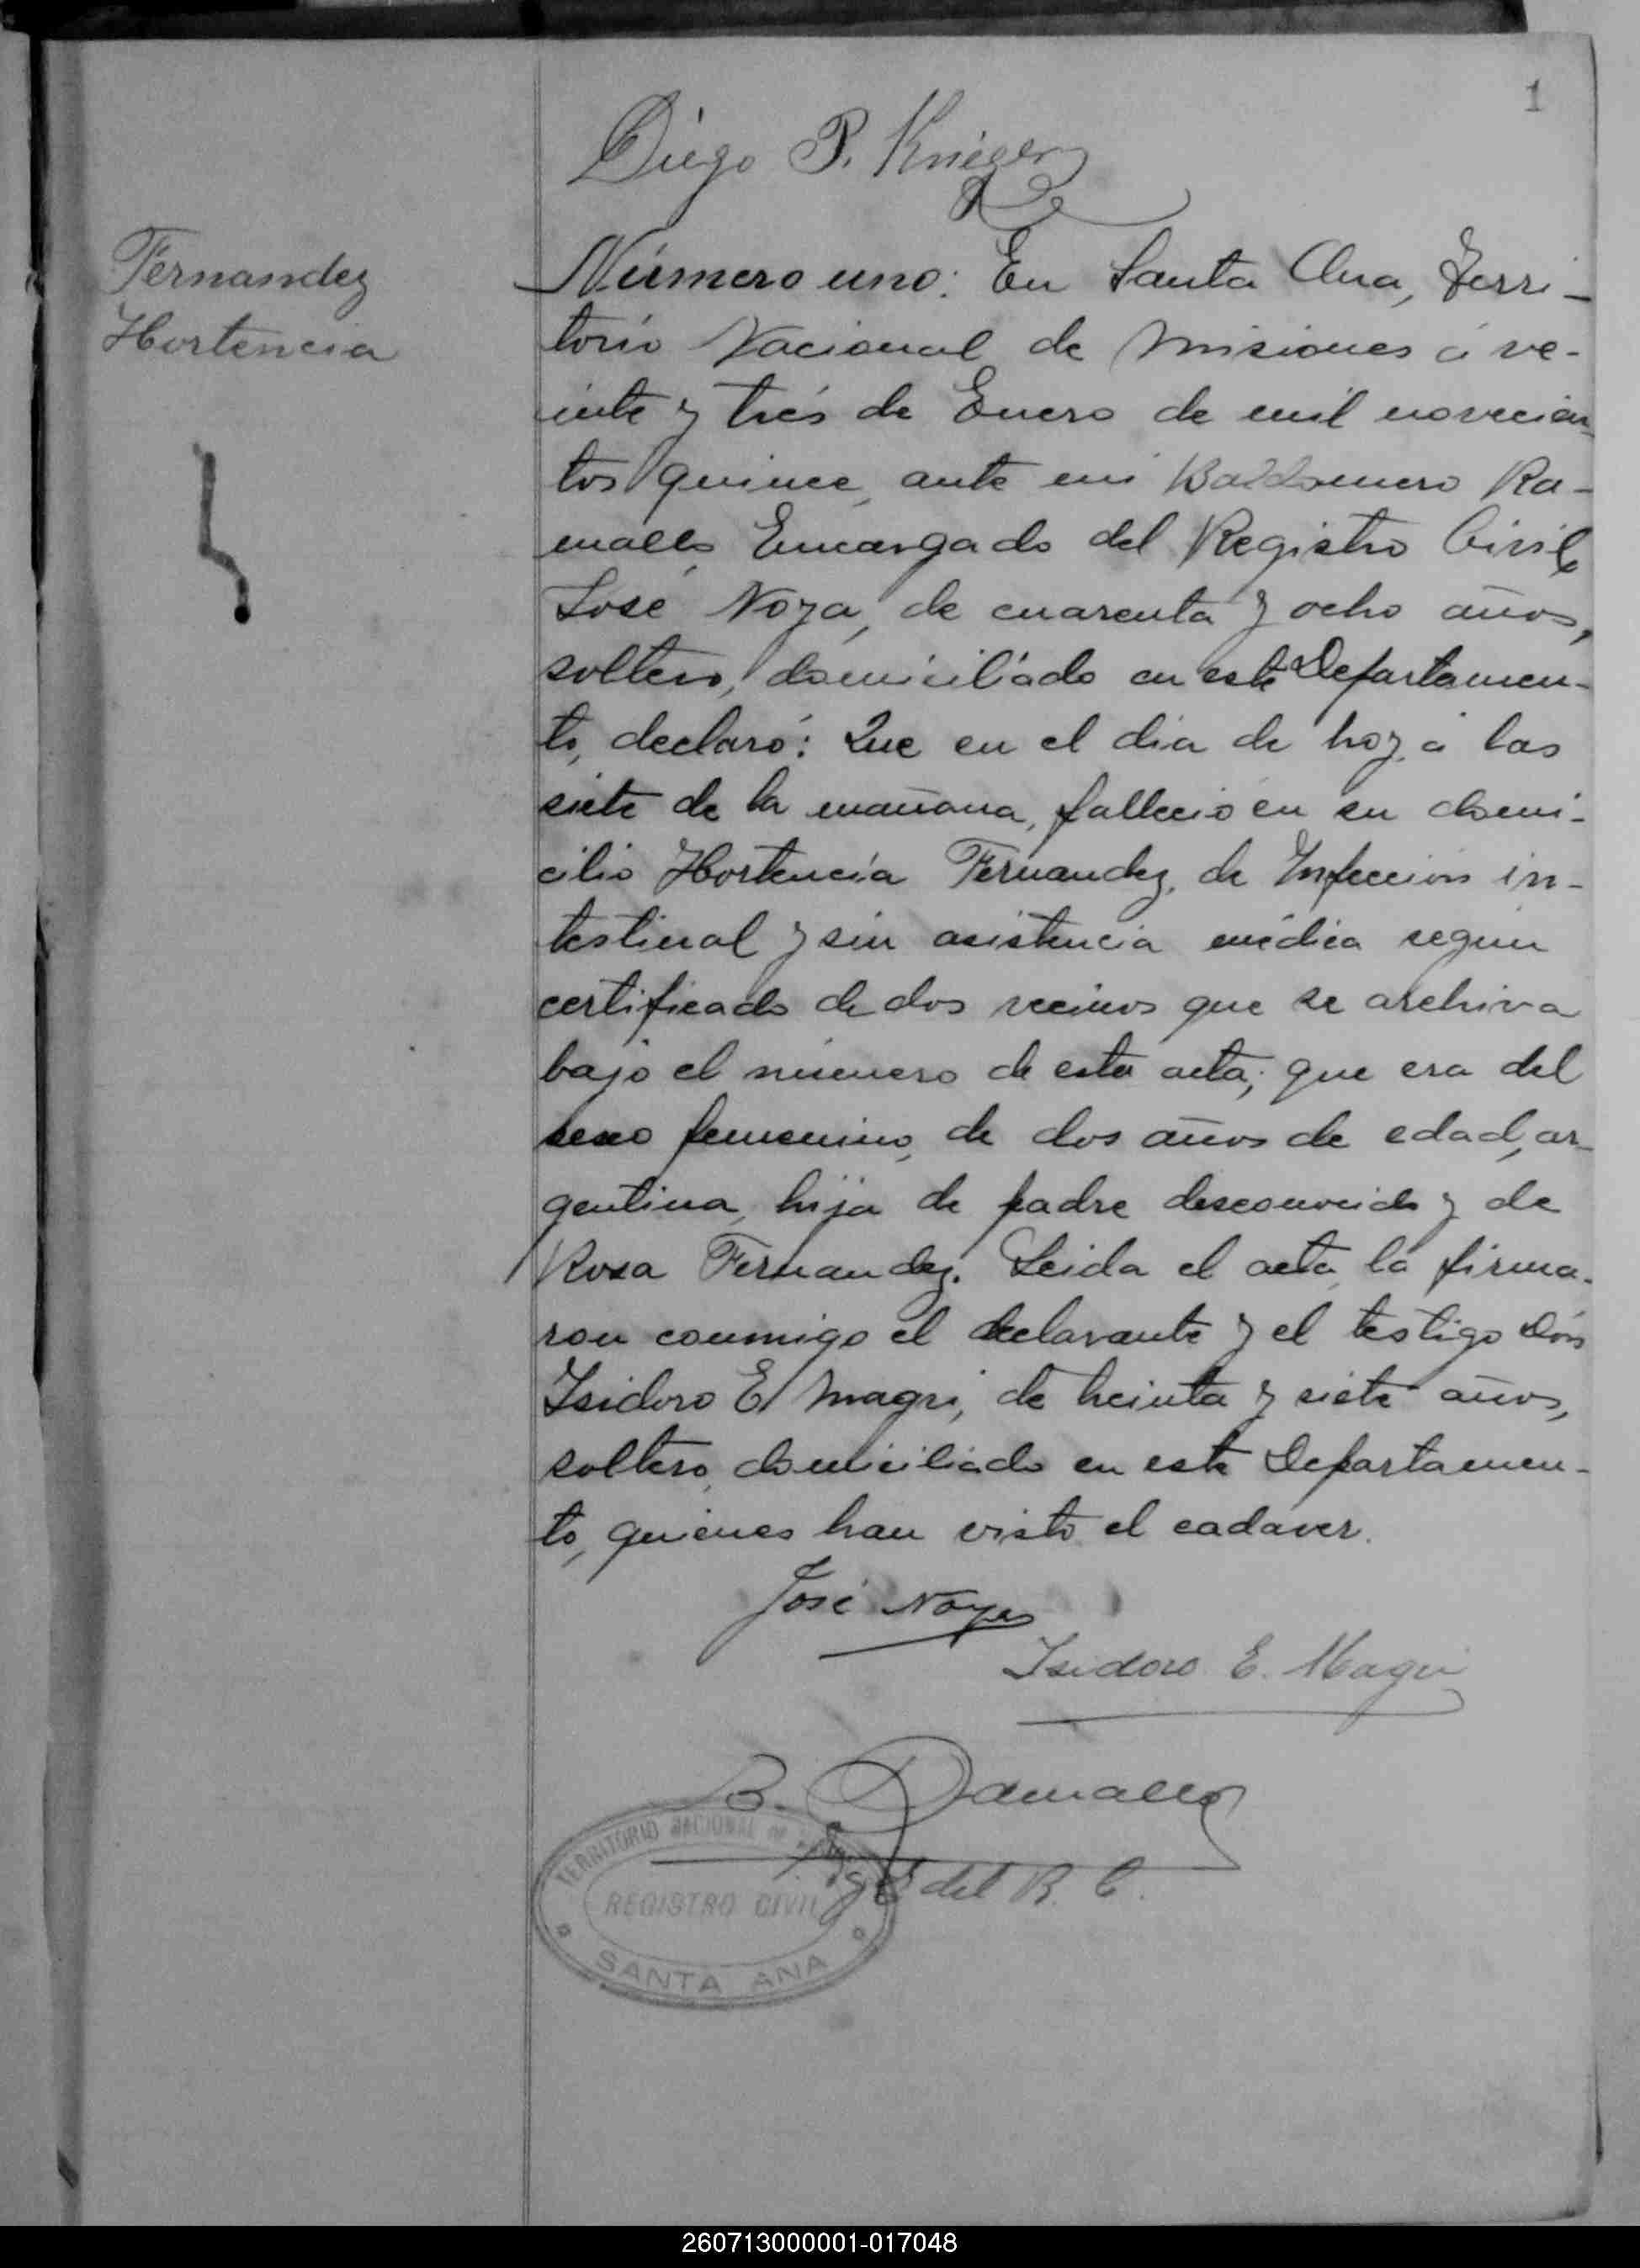 1
Diego P. Krieger
Fernandez
Hortencia
Número uno: En Santa Ana, Terri-
torio Nacional de Misiones á ve-
inte y trés de Enero de mil novecien-
tos quince, ante mi Baldomero Ra-
mallo, Encargado del Registro Civil,
José Noza, de cuarenta y ocho años,
soltero, domiciliado en este Departamen-
to, declaró: Que en el dia de hoy, á las
siete de la mañana, falleció en su domi-
cilio Hortencia Fernandez, de Infección in-
testinal y sin asistencia médica segun
certificado de dos vecinos que se archiva
bajo el número de esta acta; que era del
sexo femenino, de dos años de edad, ar-
gentina, hija de padre desconocido y de
Rosa Fernandez. Leida el acta la firma-
ron conmigo el declarante y el testigo Dón
Isidoro E. Magri, de treinta y siete años,
soltero, domiciliado en este Departamen-
to, quienes han visto el cadaver.
José Noza
Isidoro E. Magri
B. Ramallo
del R. C.
TERRITORIO NACIONAL DE
REGISTRO CIVIL
SANTA ANA
260713000001-017048